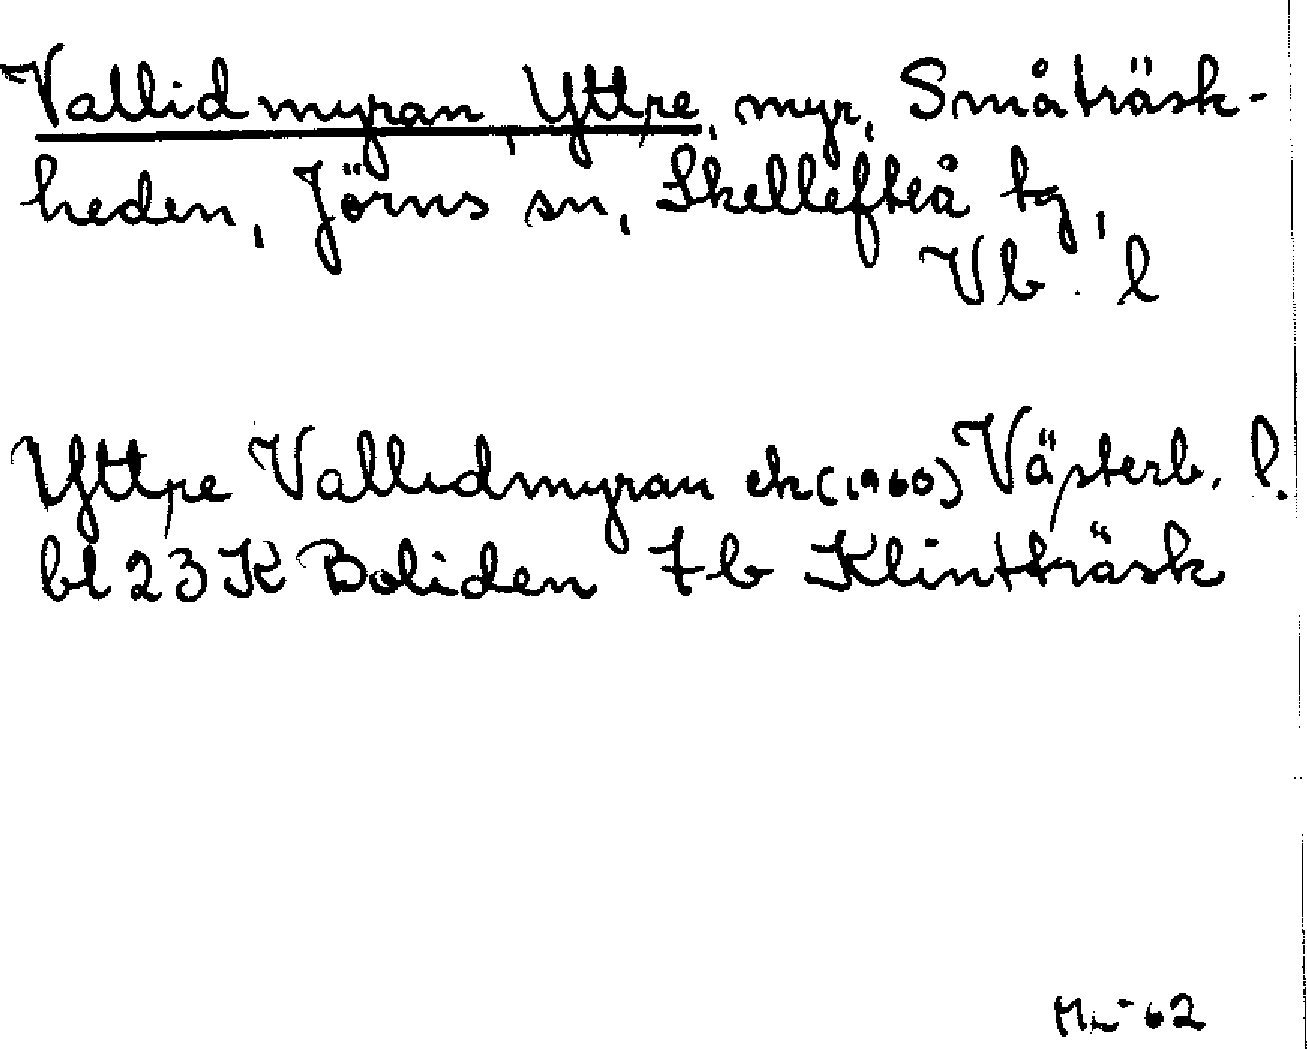 Vallidmyran, Yttre, myr, Småträsk-
heden, Jörns sn, Skellefteå tg,
Vb. l
Yttre Vallidmyran ek (1960) Västerb. l.
bl 23 K Boliden 7b Klintträsk
62